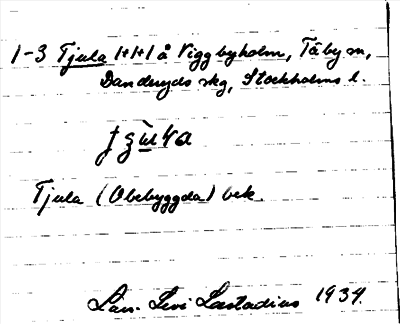 1-3 Tjula 1+1+1 å Viggbyholm, Täby sn,
Danderyds skg, Stockholms l.
Tjula (Obebyggda) bek.
Lars Levi Læstadius 1934.